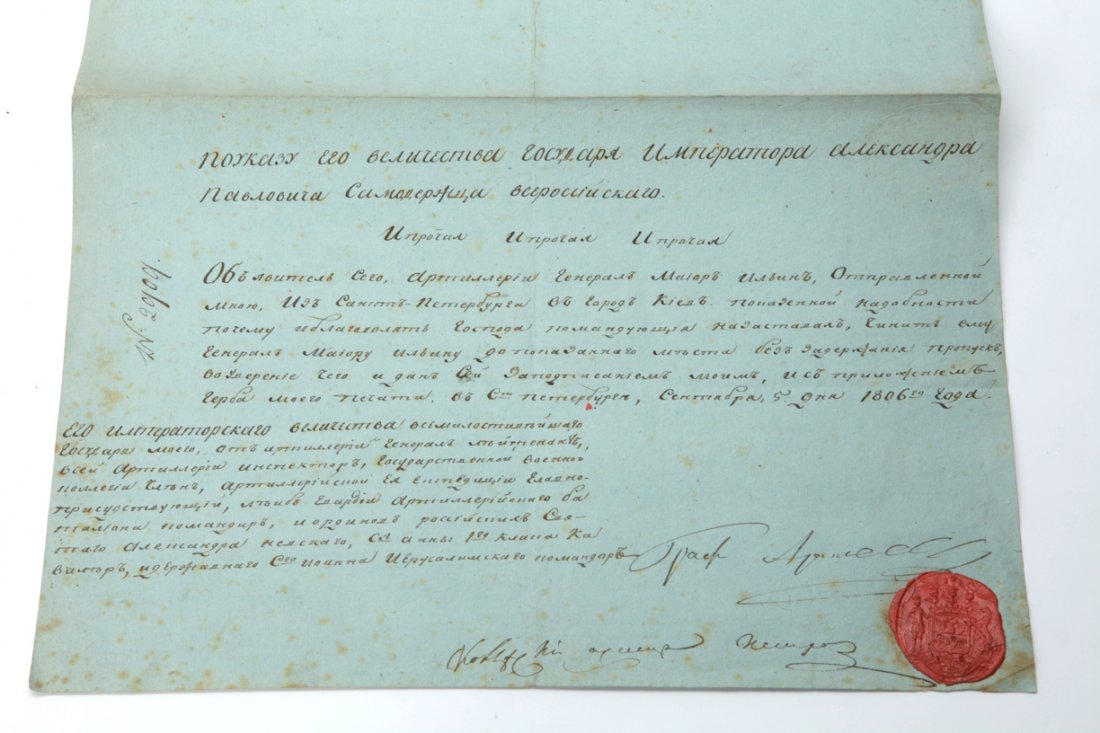 ПОУКАЗУ ЕГО ВЕЛИЧЕСТВА ГОСУДАРЯ ИМПЕРАТОРА АЛЕКСАНДРА
ПАВЛОВИЧА САМОДЕРЖЦА ВСЕРОСІЙСКАГО.
Ипрочая Ипрочая Ипрочая
Объявитель Сего, Артиллеріи Генералъ Маіоръ Ильинъ, Отправленной
мною, Изъ Санктъ-Петербурга въ городъ Кіевъ. показенной надобности
почему иблаговолятъ Господа командующія назаставахъ, Чинить ему
Генералъ Маіору Ильину допоказаннаго мѣста безъ задержанія пропускъ,
воувереніе чего иданъ Сей заподписаніемъ моимъ, исъ приложеніемъ
Герба моего печати. въ Сктъ Петербурге, Сентября, 5. дня 1806го Года.
№ 2906.
ЕГО ИМПЕРАТОРСКАГО ВЕЛИЧЕСТВА всемилостивѣйшаго
Государя моего, отъ артиллеріи Генералъ лѣйтенантъ,
всей Артиллеріи инспекторъ, Государственной военной
коллегіи Членъ, Артиллерійской Ея Експедиціи Главно-
присудствующій, лѣибъ Гвардіи Артиллерійскаго ба
таліона командиръ, и ординовъ російскихъ Свя-
таго Александра невскаго, Стй Анны 1го класа Ка
валеръ, идержавнаго Сго Іоанна Иерусалимскаго командоръ
Графъ Аракчеевъ